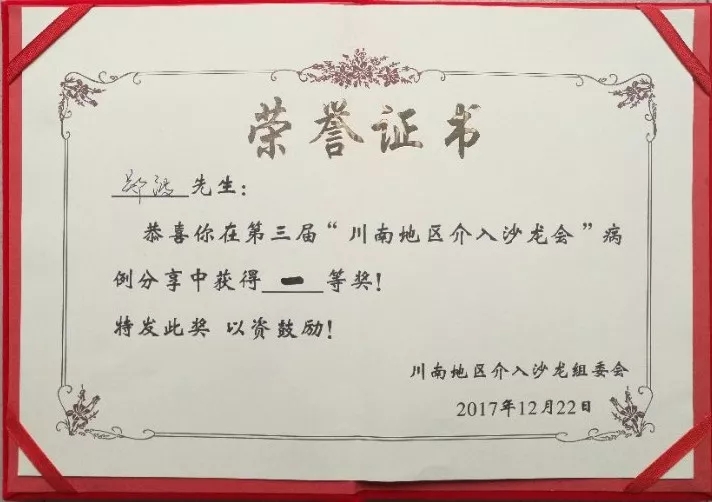 荣誉证书
先生：
恭喜你在第三届“川南地区介入沙龙会”病
例分享中获得一等奖！
特发此奖 以资鼓励！
川南地区介入沙龙组委会
2017年12月22日